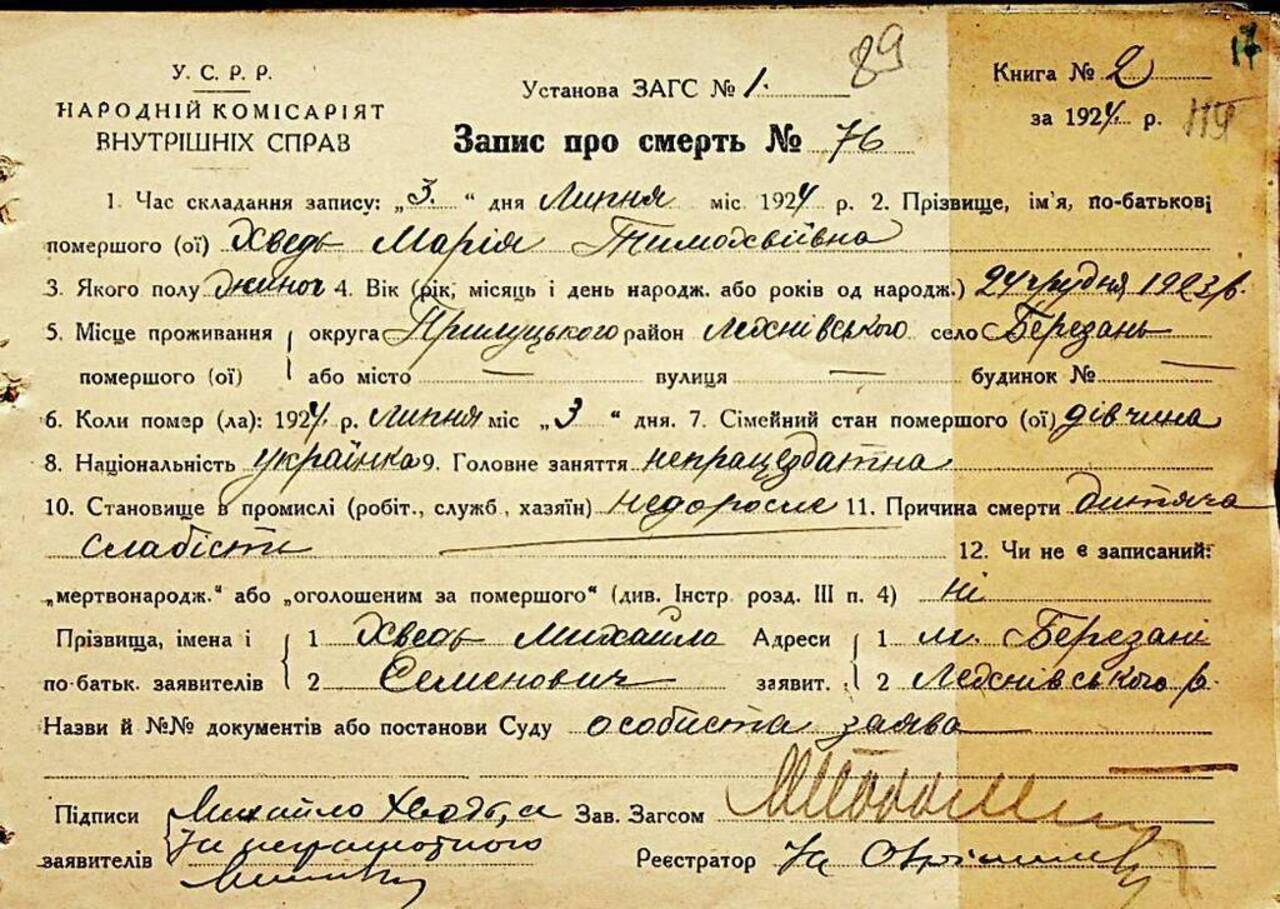 89
17
У. С. Р. Р.
НАРОДНІЙ КОМІСАРІЯТ
ВНУТРІШНІХ СПРАВ
Установа ЗАГС № 1.
Книга № 2
за 1924 р.
Запис про смерть № 76
1. Час складання запису: „3.“ дня Липня міс 1924 р. 2. Прізвище, ім'я, по-батькові
помершого (ої) Хведь Марія Тимохвіївна
3. Якого полу жіноч 4. Вік (рік, місяць і день народж. або років од народж.) 24 грудня 1923 р.
5. Місце проживання округа Прилуцького район село Березань
помершого (ої) або місто — вулиця — будинок № —
6. Коли помер (ла): 1924 р. Липня міс „3“ дня. 7. Сімейний стан помершого (ої) дівчина
8. Національність українка 9. Головне заняття непрацездатна
10. Становище в промислі (робіт., служб., хазяїн) недоросле 11. Причина смерти дитяча
слабість 12. Чи не є записаний:
„мертвонародж.“ або „оголошеним за помершого“ (див. Інстр. розд. III п. 4) ні
Прізвища, імена і 1 Хведь Михайло Адреси 1 м. Березані
по-батьк. заявителів 2 Семенович заявит. 2 р.
Назви й №№ документів або постанови Суду особиста заява
Підписи Михайло Хведь, а Зав. Загсом
заявителів За неграмотного Реєстратор